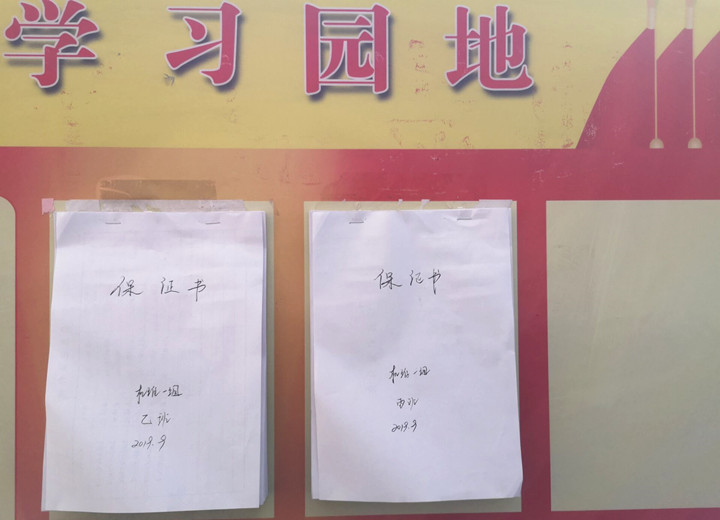 学习园地
保证书
机组一组
乙班
2019.9
保证书
机组一组
丙班
2019.9